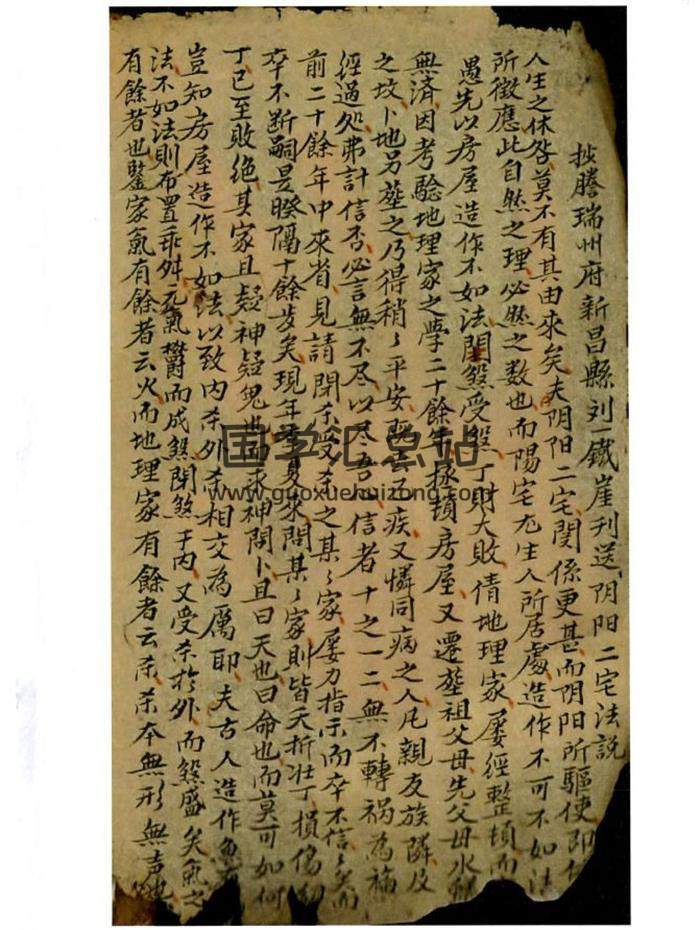 抄謄瑞州府新昌縣刘一鐵崖刊送阴阳二宅法説
人生之休咎莫不有其由來矣夫阴阳二宅関係更甚而阴阳所驱使即
所徵應此自然之理必然之数也而陽宅尤生人所居處造作不可不如法
愚先以房屋造作不如法閉煞受煞丁財大敗倩地理家屡經整頓而
無済因考騐地理家之學二十餘年拯頓房屋又遷塟祖父母先父母水
之坟卜地另塟之乃得稍々平安疾又憐同病之人凡親友族隣及
經過処弗計信否必言無不尽以尽吾信者十之一二無不轉禍為福
前二十餘年中來省見請閉杀受杀之某々家屡力指示而卒不信々矣而
卒不断嗣是暌隔十餘岁矣現年夏來問某々家則皆夭折壮丁損傷幼
丁已至敗绝其家且疑神疑鬼也而求神問卜且曰天也曰命也而莫可如何
豈知房屋造作不如法以致内杀外杀相交為厲耶夫古人造作
法不如法則布置乖舛元氣欝而成煞閉煞于内又受杀於外而煞盛矣氣之
有餘者也鑒家氣有餘者云火而地理家有餘者云杀杀本無形無声也
国学汇总站
www.guoxuehuizong.com